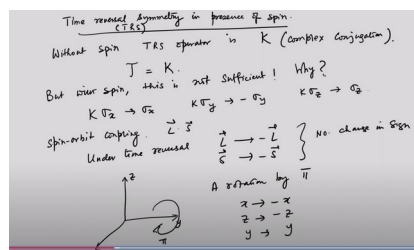 Time reversal symmetry in presence of spin.
(TRS)
Without spin TRS operator is K (complex conjugation).
T = K.
But with spin, this is not sufficient! Why?
Kσx → σx Kσy → -σy Kσz → σz
spin-orbit coupling. L⃗.S⃗
Under time reversal L⃗ → -L⃗ } No change in sign
S⃗ → -S⃗
A rotation by π
x → -x
z → -z
y → y
z
y
π